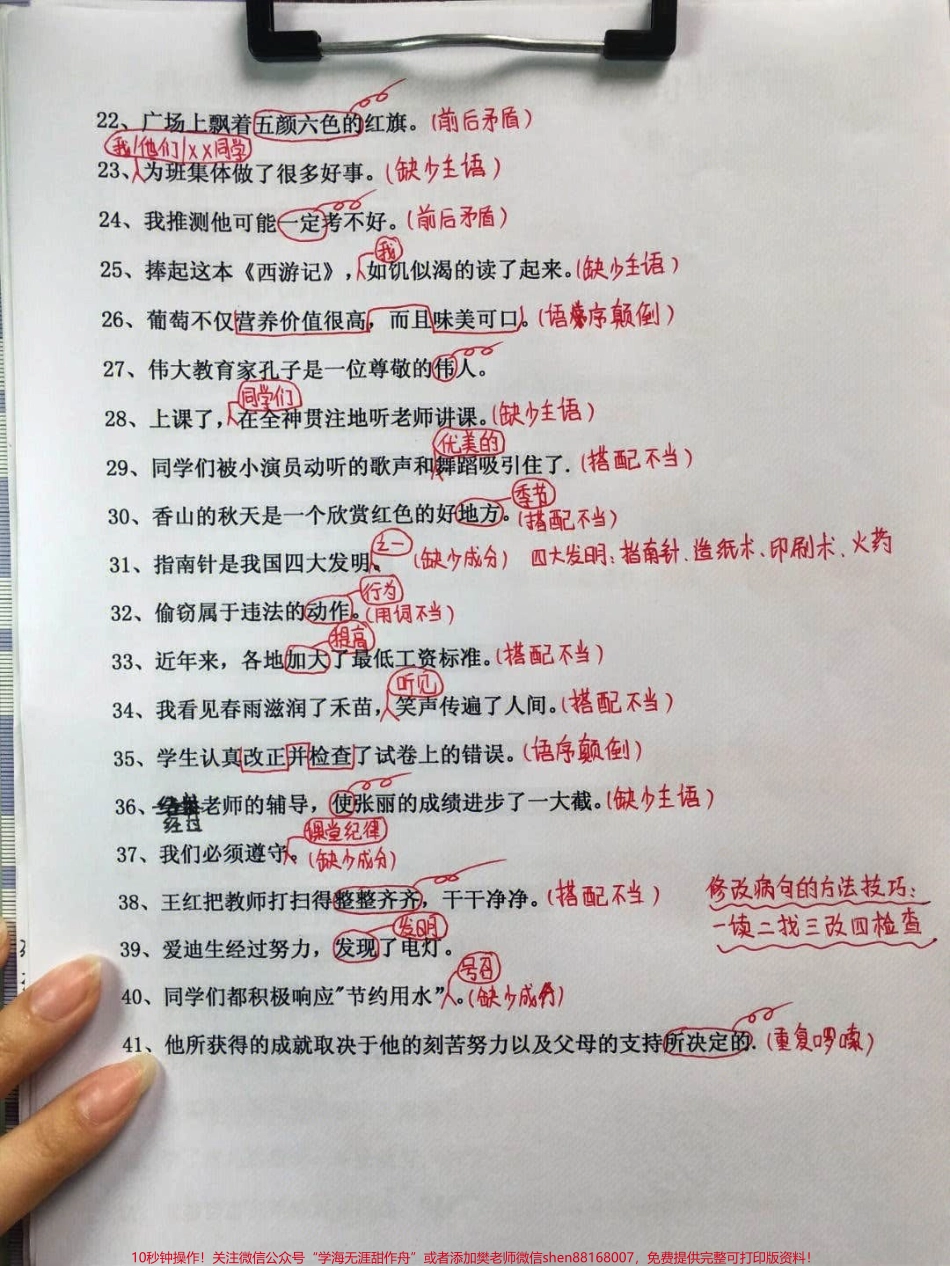 22、广场上飘着五颜六色的红旗。(前后矛盾)
我/他们/XX同学
23、为班集体做了很多好事。(缺少主语)
24、我推测他可能一定考不好。(前后矛盾)
我
25、捧起这本《西游记》,如饥似渴的读了起来。(缺少主语)
26、葡萄不仅营养价值很高,而且味美可口。(语序颠倒)
27、伟大教育家孔子是一位尊敬的伟人。
同学们
28、上课了,在全神贯注地听老师讲课。(缺少主语)
优美的
29、同学们被小演员动听的歌声和舞蹈吸引住了.(搭配不当)
季节
30、香山的秋天是一个欣赏红色的好地方。(搭配不当)
之一
31、指南针是我国四大发明。(缺少成分) 四大发明:指南针、造纸术、印刷术、火药
行为
32、偷窃属于违法的动作。(用词不当)
提高
33、近年来,各地加大了最低工资标准。(搭配不当)
听见
34、我看见春雨滋润了禾苗,笑声传遍了人间。(搭配不当)
35、学生认真改正并检查了试卷上的错误。(语序颠倒)
36、经过老师的辅导,使张丽的成绩进步了一大截。(缺少主语)
课堂纪律
37、我们必须遵守。(缺少成分)
38、王红把教师打扫得整整齐齐,干干净净。(搭配不当)
修改病句的方法技巧:
一读二找三改四检查
发明
39、爱迪生经过努力,发现了电灯。
号召
40、同学们都积极响应"节约用水"。(缺少成分)
41、他所获得的成就取决于他的刻苦努力以及父母的支持所决定的.(重复啰嗦)
10秒钟操作!关注微信公众号“学海无涯甜作舟”或者添加樊老师微信shen88168007,免费提供完整可打印版资料!